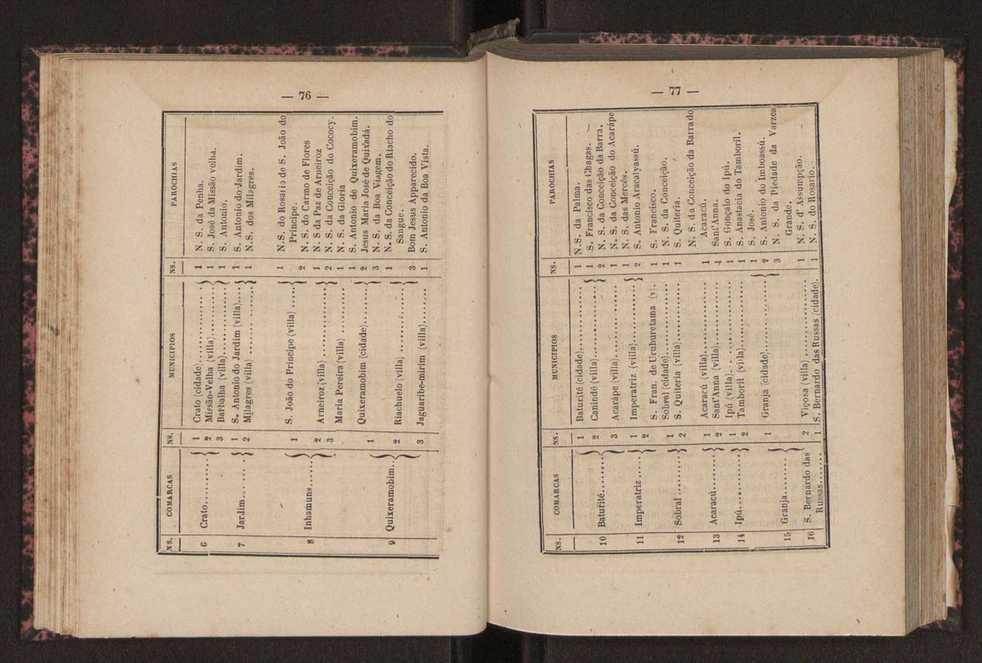 — 76 —
NS. COMARCAS NS. MUNICIPIOS NS. PAROCHIAS
6 Crato......... 1 Crato (cidade)............ 1 N. S. da Penha.
2 Missão-Velha (villa)....... 1 S. José da Missão velha.
3 Barbalha (villa)........... 1 S. Antonio.
7 Jardim....... 1 S. Antonio do Jardim (villa).... 1 S. Antonio do Jardim.
2 Milagres (villa) ........... 1 N.S. dos Milagres.
8 Inhamuns..... 1 S. João do Principe (villa) ..... 1 N.S. do Rosario de S. João do
Principe.
2 N. S. do Carmo de Flores
2 Arneiroz (villa)........... 1 N. S da Paz de Arneiroz
3 Maria Pereira (villa) ........ 2 N. S. da Conceição do Cococy.
1 N. S. da Gloria
9 Quixeramobim.. 1 Quixeramobim (cidade)........ 1 S. Antonio de Quixeramobim.
2 Jesus Maria José de Quixadá.
3 N. S. da Boa Viagem.
2 Riachuelo (villa) ........... 1 N. S. da Conceição do Riacho do
Sangue.
3 Bom Jesus Apparecido.
3 Jaguaribe-mirim (villa)....... 1 S. Antonio da Boa Vista.
— 77 —
NS. COMARCAS NS. MUNICIPIOS NS. PAROCHIAS
10 Baturité....... 1 Baturité (cidade)........... 1 N.S. da Palma.
2 Canindé (villa)............ 1 S. Francisco das Chagas.
2 N. S. da Conceição da Barra.
3 Acarápe (villa)............ 1 N. S. da Conceição do Acarápe
11 Imperatriz .... 1 Imperatriz (villa).......... 1 N. S. das Mercês.
2 S. Antonio Aracatyassú.
2 S. Fran. de Uruburetama (v). 1 S. Francisco.
12 Sobral ........ 1 Sobral (cidade)............ 1 N. S. da Conceição.
2 S. Quiteria (villa).......... 1 S. Quiteria.
13 Acaracú...... 1 Acaracú (villa)............ 1 N. S. da Conceição da Barra do
Acaracú.
2 Sant'Anna (villa)........... 1 Sant'Anna.
14 Ipú.......... 1 Ipú (villa)............... 1 S. Gonçalo do Ipú.
2 Tamboril (villa)............ 1 S. Anastacia do Tamboril.
15 Granja....... 1 Granja (cidade)............ 1 S. José.
2 S. Antonio do Imboassú.
3 N. S. da Piedade da Varzea
Grande.
2 Viçosa (villa) ............. 1 N. S. d' Assumpção.
16 S. Bernardo das
Russas....... 1 S. Bernardo das Russas (cidade). 1 N. S. do Rosario.